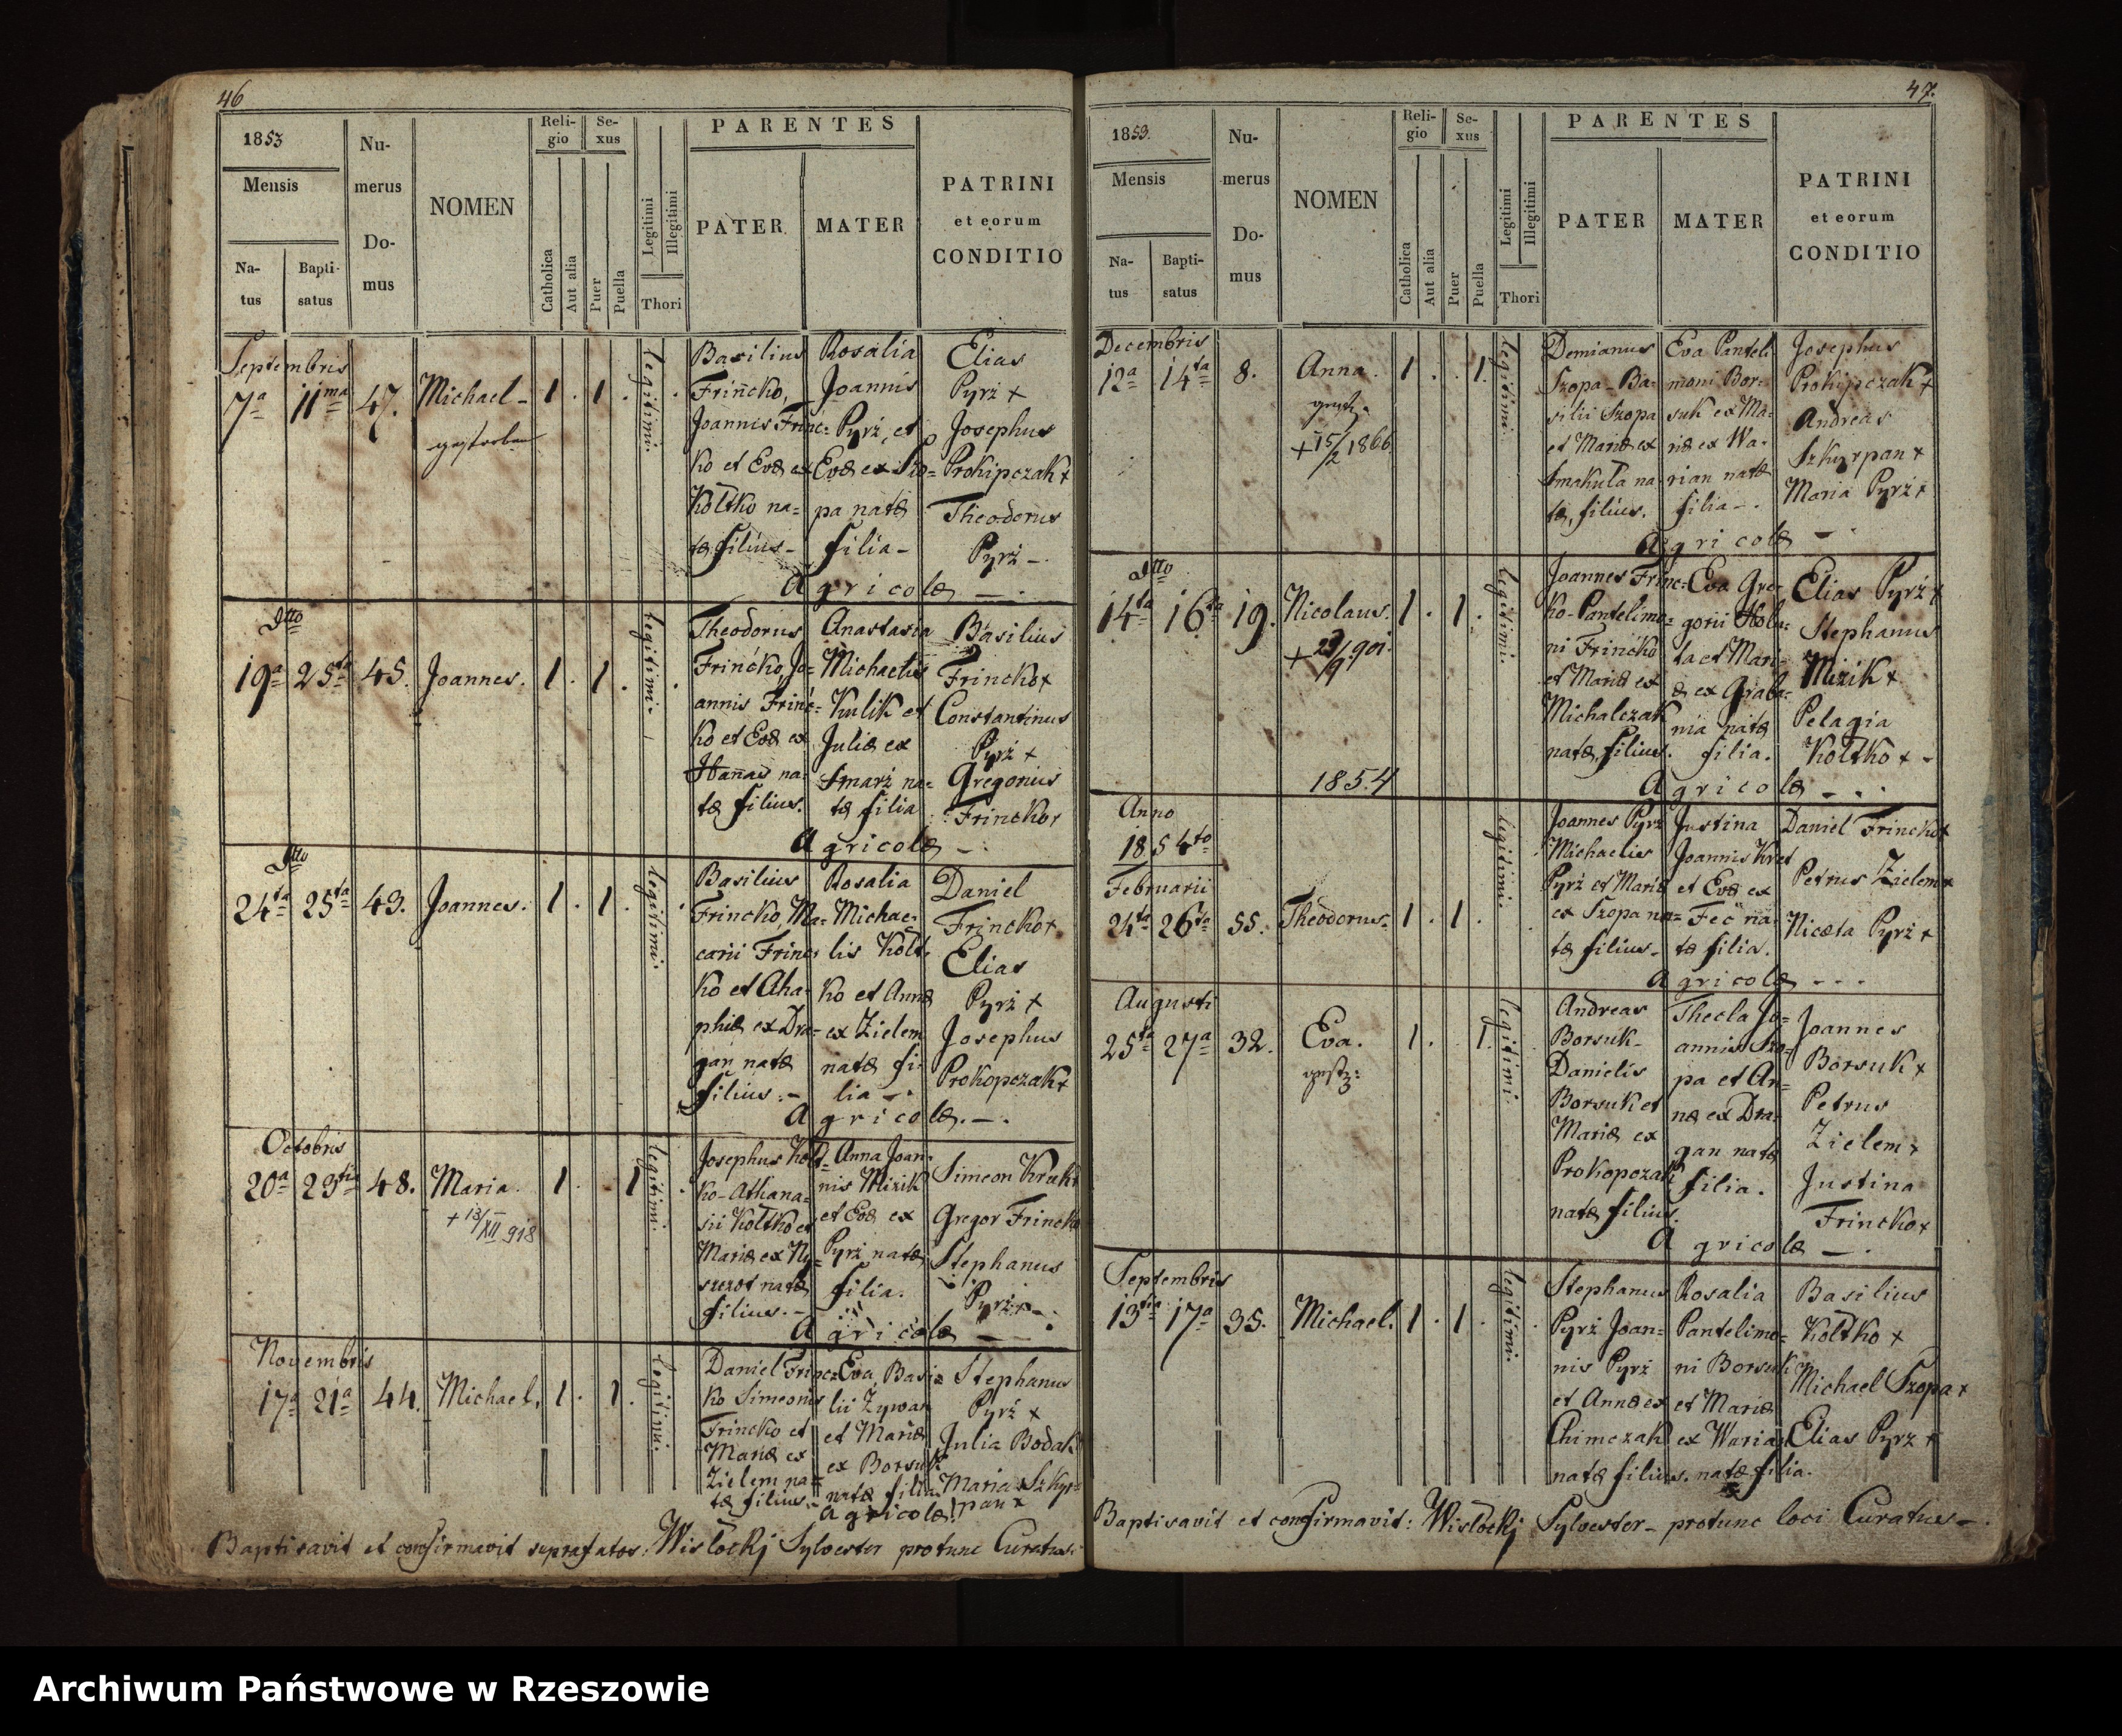 46
1853
Mensis
Na-
tus
Bapti-
satus
Nu-
merus
Do-
mus
NOMEN
Reli-
gio
Catholica
Aut alia
Se-
xus
Puer
Puella
Legitimi
Illegitimi
Thori
PARENTES
PATER
MATER
PATRINI
et eorum
CONDITIO
Septembris
7a 11ma 47. Michael-
1 . 1 .
legitimi.
Basilius
Frincko,
Joannis Frinc-
ko et Evæ ex
Koltko na-
tæ, filius-
Rosalia
Joannis
Pyrż, et
Evæ ex Szo-
pa natæ
filia-
Elias
Pyrż +
Josephus
Prokipczak +
Theodorus
Pyrż -
Agricolæ -.
Dtto
19a 25ta 45. Joannes.
1 . 1 .
legitimi.
Theodorus
Frincko, Jo-
annis Frinc-
ko et Evæ ex
Hannas na-
tæ filius.
Anastasia
Michaelis
Kulik et
Juliæ ex
Smarż na-
tæ filia
Basilius
Frincko +
Constantinus
Pyrż +
Gregorius
Frincko +
Agricolæ -.
Dtto
24ta 25ta 43. Joannes.
1 . 1 .
legitimi.
Basilius
Frincko, Ma-
carii Frinc-
ko et Aha-
phiæ ex Dra-
gan natæ
filius.-
Rosalia
Michae-
lis Kolt-
ko et Annæ
ex Zielem
natæ fi-
lia -.
Daniel
Frincko +
Elias
Pyrż +
Josephus
Prokopczak +
Agricolæ.-.
Octobris
20a 23tia 48. Maria.
+ 13/XII 918
1 . 1
legitimi.
Josephus Kolt-
ko-Athana-
sii Koltko et
Mariæ ex Ny-
szczot natæ
filius.-
Anna Joan-
nis Mizik
et Evæ ex
Pyrż natæ
filia.
Simeon
Gregor Frincko
Stephanus
Pyrż +-.
Agricolæ -
Novembris
17a 21a 44. Michael.
1 . 1 .
legitimi.
Daniel Frinc-
ko Simeonis
Frincko et
Mariæ ex
Zielem na-
tæ filius.-
Eva, Basi-
lii Zywas
et Mariæ
ex Borsuk
natæ filia
Stephanus
Pyrż +
Julia Bodak
Maria Szkyr-
pan +
Agricolæ.
Baptisavit et confirmavit suprafatos: Wisłockj Sylvester protunc Curatus.
47.
1853.
Mensis
Na-
tus
Bapti-
satus
Nu-
merus
Do-
mus
NOMEN
Reli-
gio
Catholica
Aut alia
Se-
xus
Puer
Puella
Legitimi
Illegitimi
Thori
PARENTES
PATER
MATER
PATRINI
et eorum
CONDITIO
Decembris
12a 14ta 8. Anna.
+ 15/2 1866
1 . . 1.
legitimi.
Demianus
Szopa-Ba-
silii Szopa
et Mariæ ex
Smakula na-
tæ, filius.
Eva Panteli-
moni Bor-
suk ex Ma-
riæ ex Wa-
rian natæ
filia-.
Josephus
Prokipczak +
Andreas
Szkyrpan +
Maria Pyrż +
Agricolæ -.
Dtto
14ta 16ta 19. Nicolaus.
+ 23/9 901.
1 . 1 .
legitimi.
Joannes Frinc-
ko-Pantelimo-
ni Frincko
et Mariæ ex
Michalczak
natæ, filius.
Eva Gre-
gorii Holu-
ta et Mari-
æ ex Graba-
nia natæ
filia.
Elias Pyrż +
Stephanus
Mizik +
Pelagia
Koltko + -
Agricolæ -..
1854
Anno
1854to
Februarii
24ta 26ta 55. Theodorus.
1 . 1 .
legitimi.
Joannes Pyrż
Michaelis
Pyrż et Mariæ
ex Szopa na-
tæ filius.-
Justina
Joannis Kret
et Evæ ex
Fec na-
tæ filia.
Daniel Frincko +
Petrus Zielem +
Niceta Pyrż +
Agricolæ ---
Augusti
25ta 27a 32. Eva.
1 . 1.
legitimi.
Andreas
Borsuk-
Danielis
Borsuk et
Mariæ ex
Prokopczak
natæ filius.
Thecla Jo-
annis Szo-
pa et An-
næ ex Dra-
gan natæ
filia.
Joannes
Borsuk +
Petrus
Zielem +
Justina
Frincko +
Agricolæ -.
Septembris
13tia 17a 35. Michael.
1 . 1 .
legitimi.
Stephanus
Pyrż Joan-
nis Pyrż
et Annæ ex
Chimczak
natæ filius.
Rosalia
Pantelimo-
ni Borsuk
et Mariæ
ex Warian
natæ filia.
Basilius
Koltko +
Michael Szopa +
Elias Pyrż +
Baptisavit et confirmavit: Wisłockj Sylvester- protunc loci Curatus-.
Archiwum Państwowe w Rzeszowie